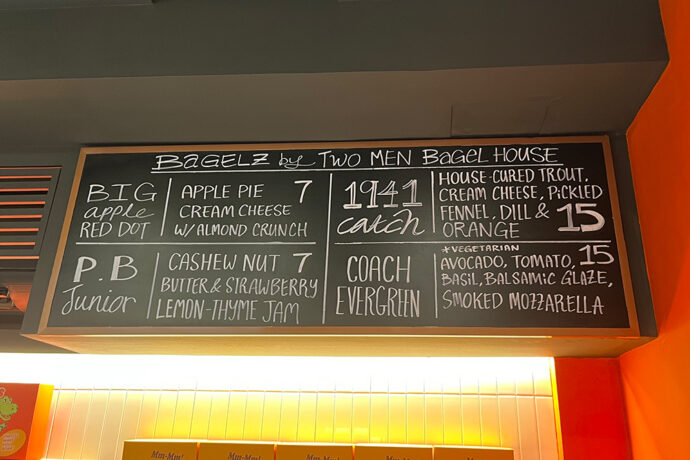 BAGELZ by TWO MEN BAGEL HOUSE
BIG
apple
RED DOT
APPLE PIE 7
CREAM CHEESE
W/ ALMOND CRUNCH
1941
catch
HOUSE-CURED TROUT,
CREAM CHEESE, PICKLED
FENNEL, DILL &
ORANGE 15
P.B
Junior
CASHEW NUT 7
BUTTER & STRAWBERRY
LEMON-THYME JAM
COACH
EVERGREEN
+VEGETARIAN
AVOCADO, TOMATO, 15
BASIL, BALSAMIC GLAZE,
SMOKED MOZZARELLA
Mm-Mm! Mm-Mm! Mm-Mm! Mm-Mm! Mm-Mm!